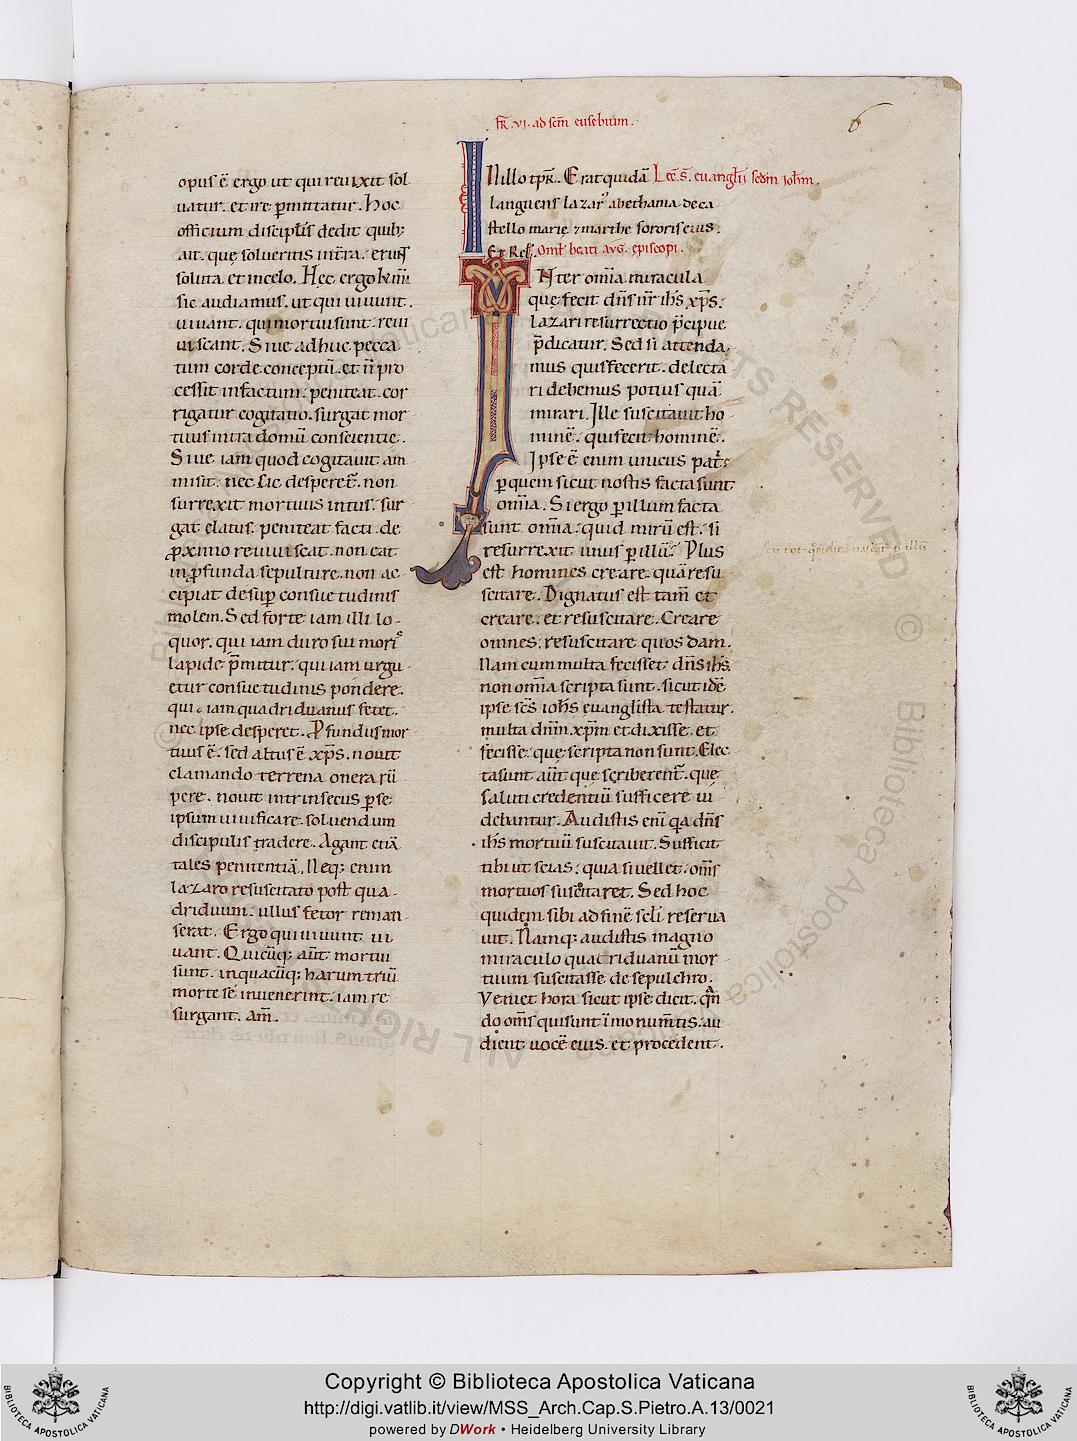 fr̄. vi. ad sc̄m eusebium.
6
opus ē ergo ut qui reuixit sol
uatur. et ire p̄mittatur. Hoc
officium disciplis dedit quib;
ait. quę solueritis in tr̄ra. erunt
soluta et in celo. Hec ergo karm̄i
sic audiamus. ut qui uiuunt.
uiuant. qui mortui sunt. reui
uiscant. Siue adhuc pecca
tum corde conceptū. et n̄ pro
cessit in factum. peniteat. cor
rigatur cogitatio. surgat mor
tuus intra domū conscientie.
Siue iam quod cogitauit am
misit. nec sic desperet̄. non
surrexit mortuus intus. sur
gat elatus. peniteat facti. de
ꝓximo reuiuiscat. non eat
in ꝓfunda sepulture. non ac
cipiat desup̄ consuetudinis
molem. Sed forte iam illi lo
quor. qui iam duro sui moris
lapide p̄mitur. qui iam urgu
etur consuetudinis pondere.
qui iam quadriduanus fetet.
nec ipse desperet. P̱fundus mor
tuus ē. sed altus ē xp̄s. nouit
clamando terrena onera rū
pere. nouit intrinsecus per se
ipsum uiuificare. soluendum
discipulis tradere. Agant etiā
tales penitentiā. Neq; enim
lazaro resuscitato post qua
driduum. ullus fetor reman
serat. Ergo qui uiuunt ui
uant. Quicūq; aūt mortui
sunt. in quacūq; harum triū
morte se inuenerint. iam re
surgant. Am̄.
IN illo tp̄r. Erat quidā Lec̄. s. euangl̄ii sc̄dm ioh̄m.
languens lazar abethania de ca
stello marię ⁊ marthe sororis eius.
Et Rel̄. Oml̄ beati auḡ. episcopi.
INter om̄ia miracula
que fecit dn̄s nr̄ ih̄s xp̄s.
lazari resurrectio p̄cipue
p̄dicatur. Sed si attenda
mus quis fecerit. delecta
ri debemus potius quā
mirari. Ille suscitauit ho
minē. qui fecit hominē.
Ipse ē enim unicus patris
ꝑ quem sicut nostis facta sunt
om̄ia. Si ergo ꝑ illum facta
sunt om̄ia. quid mirū est. si
resurrexit unus ꝑ illū. Plus
est homines creare quā resu
scitare. Dignatus est tam̄ et
creare. et resuscitare. Creare
omnes. resuscitare quosdam.
Nam cum multa fecisset dn̄s ih̄s.
non om̄ia scripta sunt. sicut idē
ipse sc̄s ioh̄s euangelista testatur.
multa dn̄m xp̄m et dixisse. et
fecisse. quę scripta non sunt. Elec
ta sunt aūt quę scriberent̄. quę
saluti credentiū sufficere ui
debantur. Audistis enī qa dn̄s
ih̄s mortuū suscitauit. Sufficit
tibi ut scias. quia si uellet. om̄s
mortuos suscitaret. Sed hoc
quidem sibi ad finē scl̄i reserua
uit. Namq; audistis magno
miraculo quatriduanū mor
tuum suscitasse de sepulchro.
Veniet hora sicut ipse dicit. qn̄
do om̄s qui sunt ī monum̄tis. au
dient uocē eius. et procedent.
Copyright © Biblioteca Apostolica Vaticana
http://digi.vatlib.it/view/MSS_Arch.Cap.S.Pietro.A.13/0021
powered by DWork • Heidelberg University Library
BIBLIOTECA APOSTOLICA VATICANA
BIBLIOTECA APOSTOLICA VATICANA
© Biblioteca Apostolica Vaticana
ALL RIGHTS RESERVED